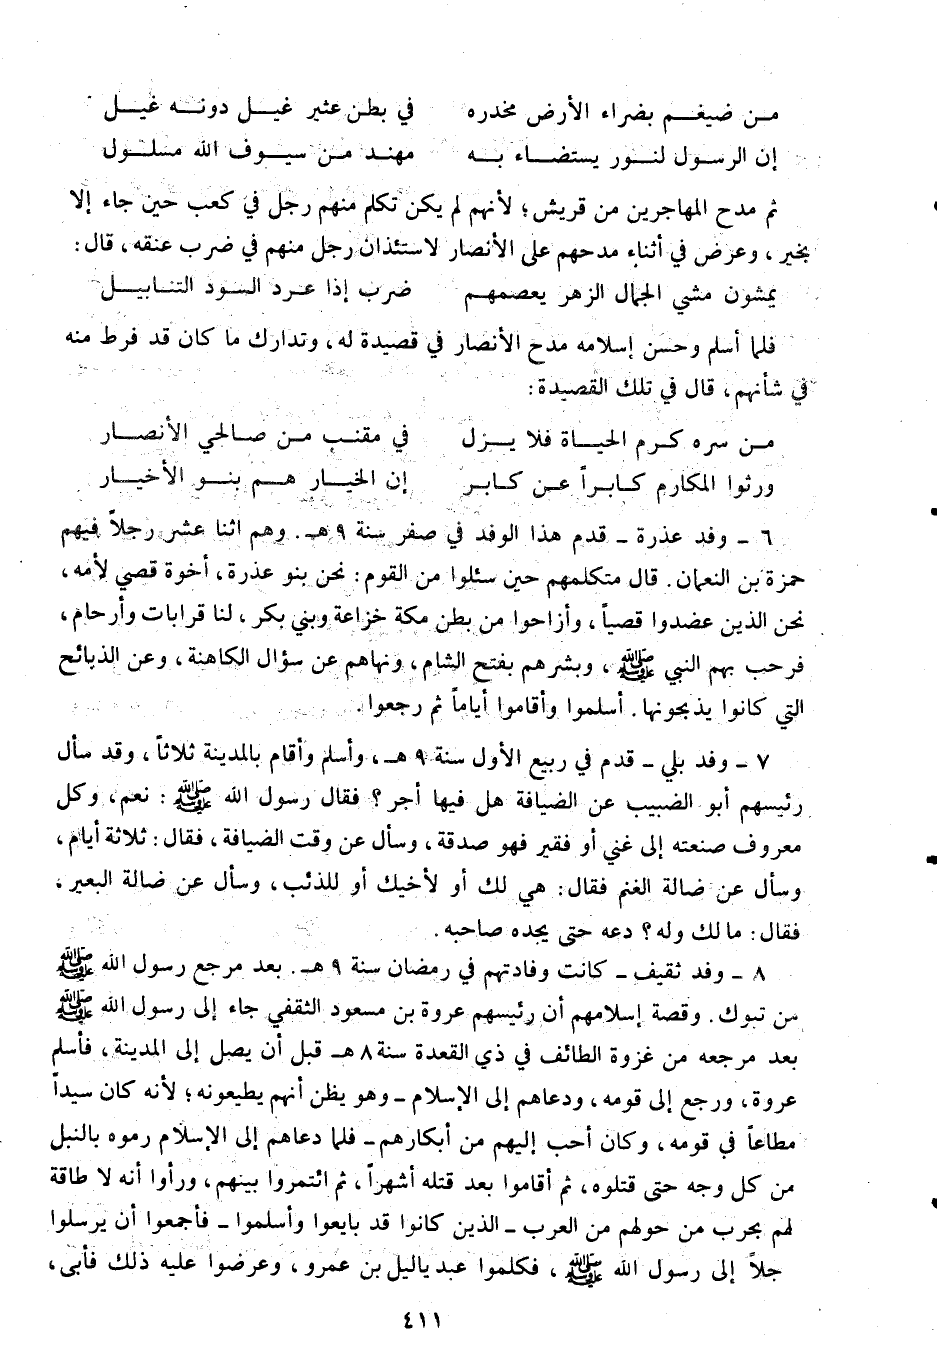 من ضيغم بضراء الأرض مخدره في بطن عثير غيل دونه غيل
إن الرسول لنور يستضاء به مهند من سيوف الله مسلول
ثم مدح المهاجرين من قريش؛ لأنهم لم يكن تكلم منهم رجل في كعب حين جاء إلا
بخير، وعرض في أثناء مدحهم على الأنصار لاستئذان رجل منهم في ضرب عنقه، قال:
يمشون مشي الجمال الزهر يعصمهم ضرب إذا عرد السود التنابيل
فلما أسلم وحسن إسلامه مدح الأنصار في قصيدة له، وتدارك ما كان قد فرط منه
في شأنهم، قال في تلك القصيدة:
من سره كرم الحياة فلا يزل في مقنب من صالحي الأنصار
ورثوا المكارم كابراً عن كابر إن الخيار هم بنو الأخيار
٦ ـ وفد عذرة ـ قدم هذا الوفد في صفر سنة ٩ هـ. وهم اثنا عشر رجلاً فيهم
حمزة بن النعمان. قال متكلمهم حين سئلوا من القوم: نحن بنو عذرة، أخوة قصي لأمه،
نحن الذين عضدوا قصياً، وأزاحوا من بطن مكة خزاعة وبني بكر، لنا قرابات وأرحام،
فرحب بهم النبي ﷺ، وبشرهم بفتح الشام، ونهاهم عن سؤال الكاهنة، وعن الذبائح
التي كانوا يذبحونها. أسلموا وأقاموا أياماً ثم رجعوا.
٧ ـ وفد بلي ـ قدم في ربيع الأول سنة ٩ هـ، وأسلم وأقام بالمدينة ثلاثاً، وقد سأل
رئيسهم أبو الضبيب عن الضيافة هل فيها أجر؟ فقال رسول الله ﷺ: نعم، وكل
معروف صنعته إلى غني أو فقير فهو صدقة، وسأل عن وقت الضيافة، فقال: ثلاثة أيام،
وسأل عن ضالة الغنم فقال: هي لك أو لأخيك أو للذئب، وسأل عن ضالة البعير،
فقال: مالك وله؟ دعه حتى يجده صاحبه.
٨ ـ وفد ثقيف ـ كانت وفادتهم في رمضان سنة ٩ هـ. بعد مرجع رسول الله ﷺ
من تبوك. وقصة إسلامهم أن رئيسهم عروة بن مسعود الثقفي جاء إلى رسول الله ﷺ
بعد مرجعه من غزوة الطائف في ذي القعدة سنة ٨ هـ قبل أن يصل إلى المدينة، فأسلم
عروة، ورجع إلى قومه، ودعاهم إلى الإسلام ـ وهو يظن أنهم يطيعونه؛ لأنه كان سيداً
مطاعاً في قومه، وكان أحب إليهم من أبكارهم ـ فلما دعاهم إلى الإسلام رموه بالنبل
من كل وجه حتى قتلوه، ثم أقاموا بعد قتله أشهراً، ثم ائتمروا بينهم، ورأوا أنه لا طاقة
لهم بحرب من حولهم من العرب ـ الذين كانوا قد بايعوا وأسلموا ـ فأجمعوا أن يرسلوا
جلاً إلى رسول الله ﷺ، فكلموا عبد ياليل بن عمرو، وعرضوا عليه ذلك فأبى،
٤١١